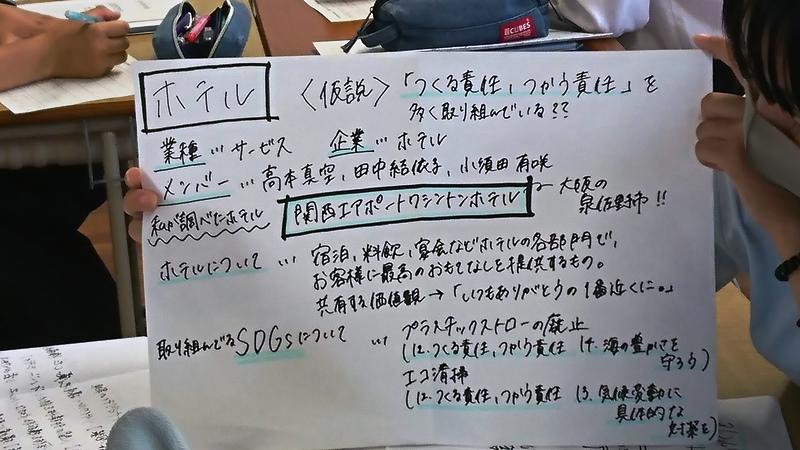 ホテル 〈仮説〉「つくる責任、つかう責任」を
多く取り組んでいる??
業種…サービス 企業…ホテル
メンバー…高本真空、田中結依子、小須田有咲
私が調べたホテル 関西エアポートワシントンホテル ← 大阪の
泉佐野市!!
ホテルについて … 宿泊、料飲、宴会などホテルの各部門で、
お客様に最高のおもてなしを提供するもの。
共有する価値観→「いつもありがとうの1番近くに。」
取り組んでるSDGsについて … プラスチックストローの廃止
(12.つくる責任、つかう責任 14.海の豊かさを
守ろう)
エコ清掃
(12.つくる責任、つかう責任 13.気候変動に
具体的な
対策を)
CUBES